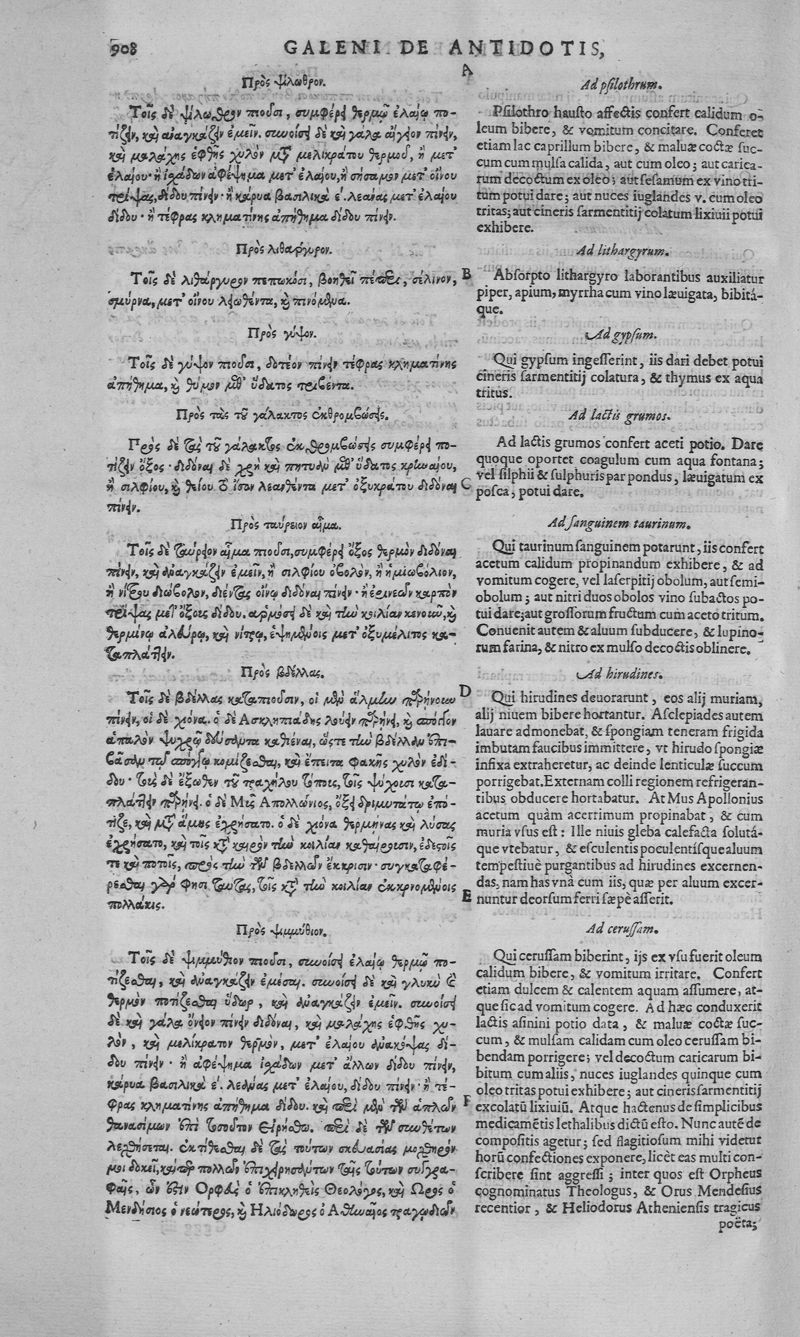 908
GALENI DE ANTIDOTIS,
Πρὸς ψίλωθρον.
Τοῖς δὲ ψίλωθρον πιοῦσι, συμφέρει θερμῷ ἐλαίῳ πο-
τίζειν, καὶ ἀναγκάζειν ἐμεῖν. συνοίσει δὲ καὶ γάλα αἴγειον πίνειν,
καὶ μαλάχης ἑφθῆς χυλὸν μετὰ μελικράτου θερμοῦ, ἢ μετ'
ἐλαίου· ἢ ἰσχάδων ἀφέψημα μετ' ἐλαίου, ἢ σήσαμον μετ' οἴνου
τρίψας, δίδου πίνειν· ἢ κάρυα βασιλικὰ ε'. λεάνας μετ' ἐλαίου
δίδου· ἢ τέφρας κληματίνης ἀπήθημα δίδου πίνειν.
Πρὸς λιθάργυρον.
Τοῖς δὲ λιθάργυρον πεπωκόσι, βοηθεῖ πέπερι, σέλινον,
σμύρνα, μετ' οἴνου λειωθέντα, καὶ πινόμενα.
Πρὸς γύψον.
Τοῖς δὲ γύψον πιοῦσι, δοτέον πίνειν τέφρας κληματίνης
ἀπήθημα, καὶ θύμον μεθ' ὕδατος τριβέντα.
Πρὸς τὰς τοῦ γάλακτος ἐκθρομβώσεις.
Πρὸς δὲ τὰς τοῦ γάλακτος ἐκθρομβώσεις συμφέρει πο-
τίζειν ὄξος· διδόναι δὲ χρὴ καὶ πητυὰν μεθ' ὕδατος κρηναίου,
ἢ σιλφίου, καὶ θείου τὸ ἴσον λεανθέντα μετ' ὀξυκράτου διδόναι
πίνειν.
Πρὸς ταύρειον αἷμα.
Τοῖς δὲ ταύρειον αἷμα πιοῦσι, συμφέρει ὄξος θερμὸν διδόναι
πίνειν, καὶ ἀναγκάζειν ἐμεῖν, ἢ σιλφίου ὀβολὸν, ἢ ἡμιωβόλιον,
ἢ νίτρου διώβολον, διέντας οἴνῳ διδόναι πίνειν· ἢ ἐρινεῶν καρπὸν
τρίψας μετ' ὄξους δίδου. ἁρμόσει δὲ καὶ τὴν κοιλίαν κενοῦν, καὶ
θερμίνῳ ἀλεύρῳ, καὶ νίτρῳ, ἑψημένοις μετ' ὀξυμέλιτος κα-
ταπλάττειν.
Πρὸς βδέλλας.
Τοῖς δὲ βδέλλας καταπιοῦσιν, οἱ μὲν ἅλμην παρῄνουν
πίνειν, οἱ δὲ χιόνα. ὁ δὲ Ἀσκληπιάδης λούειν παρῄνει, καὶ σπόγγον
ἁπαλὸν ψυχρῷ δεύσαντα καθιέναι, ὥστε τὴν βδέλλαν ἐπι-
βᾶσαν τῷ σπόγγῳ κομίζεσθαι, καὶ ἔπειτα φακῆς χυλὸν ἐδί-
δου· τοὺς δὲ ἔξωθεν τοῦ τραχήλου τόπους, τοῖς ψύχουσι κατα-
πλάττειν παρῄνει. ὁ δὲ Μῦς Ἀπολλώνιος, ὄξει δριμυτάτῳ ἐπό-
τιζε, καὶ μετὰ ἅλμης ἐχρήσατο. ὁ δὲ χιόνα θερμήνας καὶ λύσας
ἐχρήσατο, καὶ τοῖς κατὰ καιρὸν τὴν κοιλίαν καθαίρουσιν, ἐδεστοῖς
τε καὶ ποτοῖς, πρὸς τὴν τῶν βδελλῶν ἔκκρισιν· συγκαταφέ-
ρεσθαι γάρ φησι ταύτας, τοῖς κατὰ τὴν κοιλίαν ἐκκρινομένοις
πολλάκις.
Πρὸς ψιμμύθιον.
Τοῖς δὲ ψιμμύθιον πιοῦσι, συνοίσει ἐλαίῳ θερμῷ πο-
τίζεσθαι, καὶ ἀναγκάζειν ἐμέσαι. συνοίσει δὲ καὶ γλυκὺ καὶ
θερμὸν ποτίζεσθαι ὕδωρ, καὶ ἀναγκάζειν ἐμεῖν. συνοίσει
δὲ καὶ γάλα ὄνειον πίνειν διδόναι, καὶ μαλάχης ἑφθῆς χυ-
λὸν, καὶ μελίκρατον θερμὸν, μετ' ἐλαίου ἀνακόψας δί-
δου πίνειν· ἢ ἀφέψημα ἰσχάδων μετ' ἄλλων δίδου πίνειν,
κάρυα βασιλικὰ ε'. λεάνας μετ' ἐλαίου, δίδου πίνειν· ἢ τέ-
φρας κληματίνης ἀπήθημα δίδου. καὶ περὶ μὲν τῶν ἁπλῶν
θανασίμων ἐπὶ τοσοῦτον εἰρήσθω. περὶ δὲ τῶν συνθέτων
λεχθήσεται. ἐκτίθεσθαι δὲ τὰς τούτων σκευασίας μοχθηρόν
μοι δοκεῖ, καίπερ πολλῶν ἐπιχειρησάντων ταῖς τούτων συγγρα-
φαῖς, ὧν ἐστὶν Ὀρφεὺς ὁ ἐπικληθεὶς Θεολόγος, καὶ Ὧρος ὁ
Μενδήσιος ὁ νεώτερος, καὶ Ἡλιόδωρος ὁ Ἀθηναῖος τραγῳδιῶν
A
B
C
D
E
F
Ad psilothrum.
Psilothro hausto affectis confert calidum o-
leum bibere, & vomitum concitare. Conferet
etiam lac caprillum bibere, & maluæ coctæ suc-
cum cum mulsa calida, aut cum oleo; aut carica-
rum decoctum ex oleo; aut sesamum ex vino tri-
tum potui dare; aut nuces iuglandes v. cum oleo
tritas; aut cineris sarmentitij colatum lixiuii potui
exhibere.
Ad lithargyrum.
Absorpto lithargyro laborantibus auxiliatur
piper, apium, myrrha cum vino læuigata, bibitá-
que.
Ad gypsum.
Qui gypsum ingesserint, iis dari debet potui
cineris sarmentitij colatura, & thymus ex aqua
tritus.
Ad lactis grumos.
Ad lactis grumos confert aceti potio. Dare
quoque oportet coagulum cum aqua fontana;
vel silphii & sulphuris par pondus, læuigatum ex
posca, potui dare.
Ad sanguinem taurinum.
Qui taurinum sanguinem potarunt, iis confert
acetum calidum propinandum exhibere, & ad
vomitum cogere, vel laserpitij obolum, aut semi-
obolum; aut nitri duos obolos vino subactos po-
tui dare; aut grossorum fructum cum aceto tritum.
Conuenit autem & aluum subducere, & lupino-
rum farina, & nitro ex mulso decoctis oblinere.
Ad hirudines.
Qui hirudines deuorarunt, eos alij muriam,
alij niuem bibere hortantur. Asclepiades autem
lauare admonebat, & spongiam teneram frigida
imbutam faucibus immittere, vt hirudo spongiæ
infixa extraheretur, ac deinde lenticulæ succum
porrigebat. Externam colli regionem refrigeran-
tibus obducere hortabatur. At Mus Apollonius
acetum quàm acerrimum propinabat, & cum
muria vsus est: Ille niuis gleba calefacta solutá-
que vtebatur, & esculentis poculentísque aluum
tempestiuè purgantibus ad hirudines excernen-
das, nam has vnà cum iis, quæ per aluum excer-
nuntur deorsum ferri sæpè asserit.
Ad cerussam.
Qui cerussam biberint, ijs ex vsu fuerit oleum
calidum bibere, & vomitum irritare. Confert
etiam dulcem & calentem aquam assumere, at-
que sic ad vomitum cogere. Ad hæc conduxerit
lactis asinini potio data, & maluæ coctæ suc-
cum, & mulsam calidam cum oleo cerussam bi-
bendam porrigere; vel decoctum caricarum bi-
bitum cum aliis, nuces iuglandes quinque cum
oleo tritas potui exhibere; aut cineris sarmentitij
excolatũ lixiuiũ. Atque hactenus de simplicibus
medicamẽtis lethalibus dictũ esto. Nunc autẽ de
compositis agetur; sed flagitiosum mihi videtur
horũ confectiones exponere, licèt eas multi con-
scribere sint aggressi; inter quos est Orpheus
cognominatus Theologus, & Orus Mendesius
recentior, & Heliodorus Atheniensis tragicus
poëta;